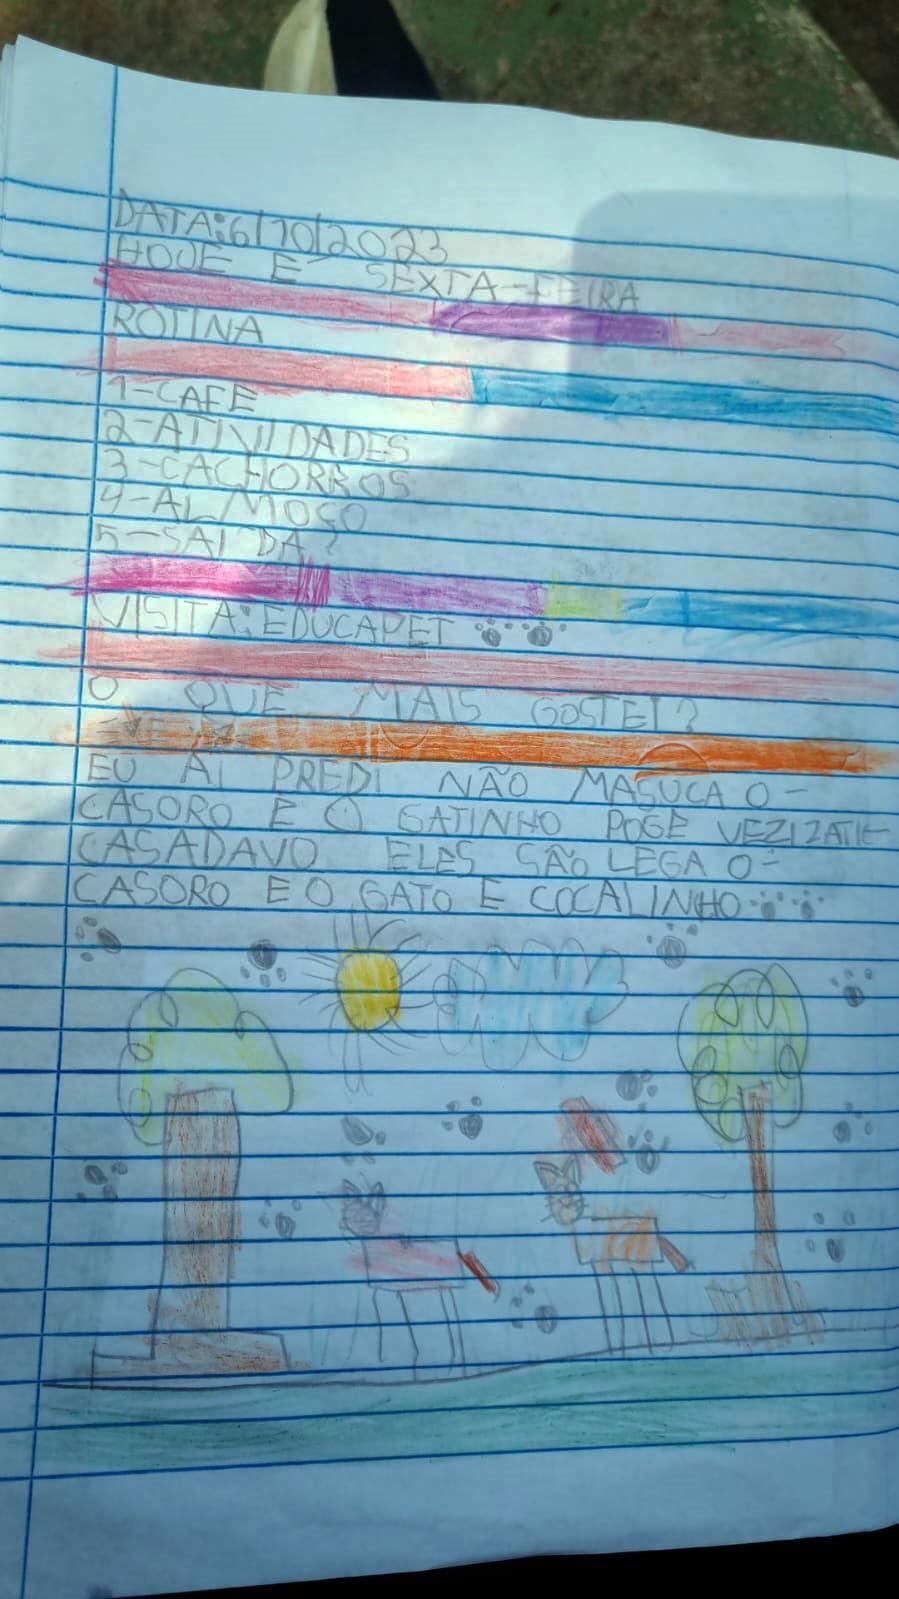 DATA:6/10/2023
HOJE E SEXTA-FEIRA
ROTINA
1-CAFE
2-ATIVIDADES
3-CACHORROS
4-ALMOÇO
5-SAIDA
VISITA: EDUCAPET
O QUE MAIS GOSTEI?
EU AI PREDI NÃO MASUCA O-
CASORO E O GATINHO POGE VEZIZATIE
CASADAVO ELES SÃO LEGA O-
CASORO E O GATO E COCALINHO